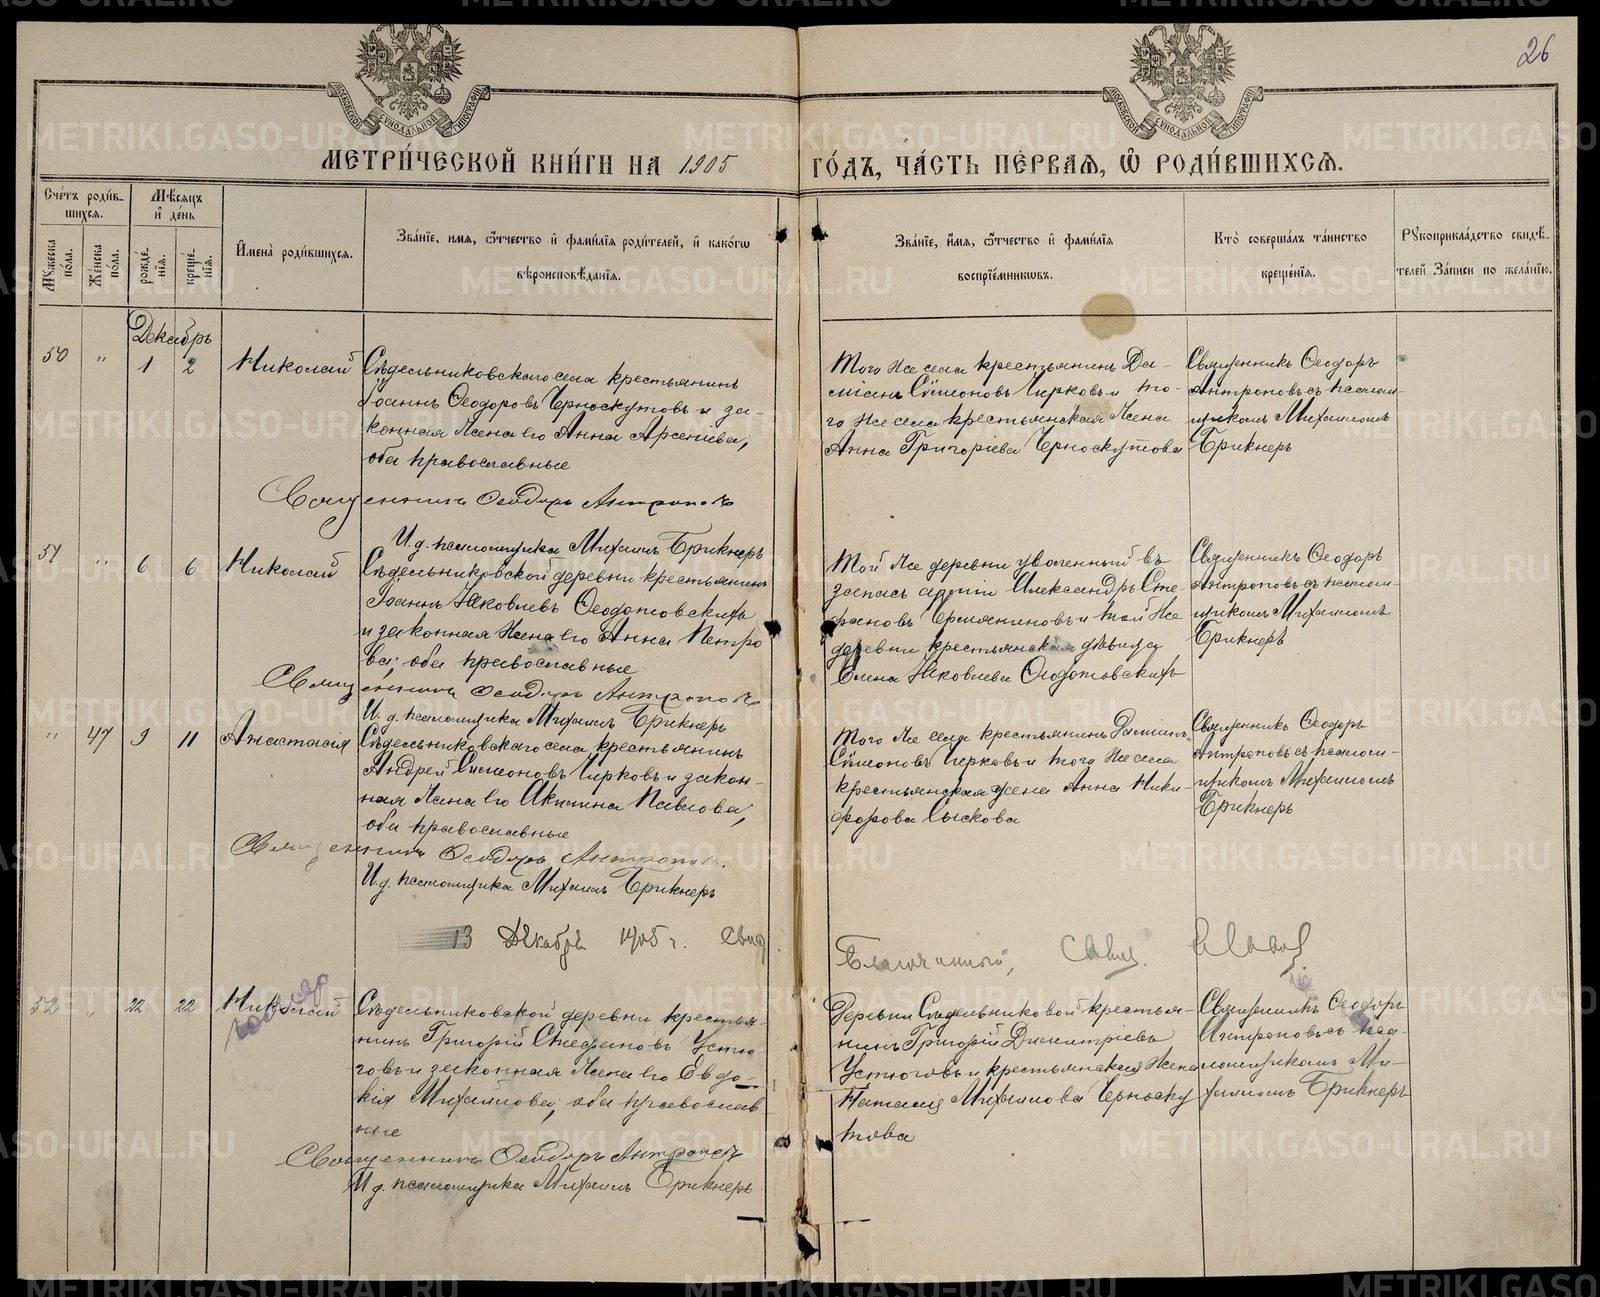 26
МЕТРИ́ЧЕСКОЙ КНИ́ГИ НА 1905 ГО́ДЪ, ЧА́СТЬ ПЕ́РВАЯ, Ѡ РОДИ́ВШИХСЯ.
Счетъ роди́вшихся.
Мѣсяцъ и де́нь
Мꙋжеска по́ла.
Же́нска по́ла.
рожде́нїя.
креще́нїя.
Имена̀ роди́вшихся.
Зва́нїе, имя, ѻтчество и фами́лїя роди́телей, и како́гѡ
вѣроисповѣ́данїя.
Зва́нїе, имя, ѻтчество и фами́лїя
воспрїе́мникѡвъ.
Кто̀ соверша́лъ та́инство
креще́нїя.
Рꙋкоприкла́дство свидѣ́-
телей За́писи по жела́нїю.
Декабрь
50 " 1 2 Николай
Сѣдельниковскаго села крестьянинъ
Іоаннъ Ѳеодоровъ Черноскутовъ и за-
конная жена его Анна Арсеніева,
оба православные
Священникъ Ѳеодоръ Антроповъ
И. д. псаломщика Михаилъ Брикнеръ
Того же села крестьянинъ Да-
міанъ Сѵмеоновъ Чирковъ и то-
го же села крестьянская жена
Анна Григорьева Черноскутова
Священникъ Ѳеодоръ
Антроповъ съ псалом-
щикомъ Михаиломъ
Брикнеръ
51 " 6 6 Николай
Сѣдельниковской деревни крестьянинъ
Іоаннъ Яковлевъ Ѳеодотовскихъ
и законная жена его Анна Петро
ва; оба православные
Священникъ Ѳеодоръ Антроповъ
И. д. псаломщика Михаилъ Брикнеръ
Той же деревни уволенный въ
запасъ арміи Александръ Сте-
фановъ и той же
деревни крестьянская дѣвица
Елена Яковлева Ѳеодотовскихъ
Священникъ Ѳеодоръ
Антроповъ съ псалом-
щикомъ Михаиломъ
Брикнеръ
" 47 9 11 Анастасія
Сѣдельниковскаго села крестьянинъ
Андрей Симеоновъ Чирковъ и закон-
ная жена его Акилина Павлова;
оба православные
Священникъ Ѳеодоръ Антроповъ.
И. д. псаломщика Михаилъ Брикнеръ
Того же села крестьянинъ Даміанъ
Сѵмеоновъ Чирковъ и того же села
крестьянская жена Анна Ники-
форова Сыскова
Священникъ Ѳеодоръ
Антроповъ съ псалом-
щикомъ Михаиломъ
Брикнеръ
13 Декабря 1905 г.
Благочинный, Свящ.
52 " 22 22 Николай
Сѣдельниковской деревни крестья-
нинъ Григорій Стефановъ Устю-
говъ и законная жена его Евдо-
кія Михаилова; оба православ
ные
Священникъ Ѳеодоръ Антроповъ
И д. псаломщика Михаилъ Брикнеръ
Деревни Сѣдельниковой крестья-
нинъ Григорій Димитріевъ
Устюговъ и крестьянская жена
Наталія Михаилова Черноску
това
Священникъ Ѳеодоръ
Антроповъ съ пса-
ломщикомъ Ми-
хаиломъ Брикнеръ
METRIKI.GASO-URAL.RU